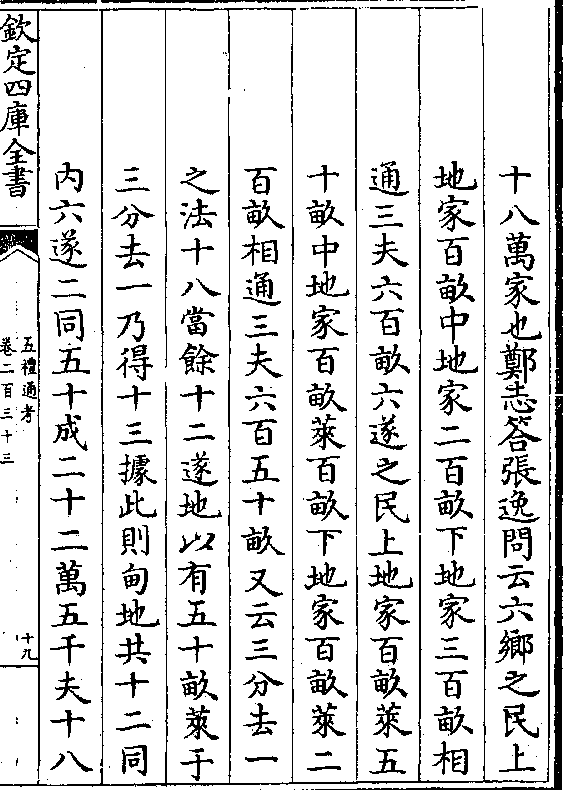 十八萬家也鄭志答張逸問云六鄉之民上
地家百畝中地家二百畝下地家三百畝相
通三夫六百畝六遂之民上地家百畝萊五
十畝中地家百畝萊百畝下地家百畝萊二
百畝相通三夫六百五十畝又云三分去一
之法十八當餘十二遂地以有五十畝萊于
三分去一乃得十三據此則甸地共十二同
内六遂二同五十成二十二萬五千夫十八
欽定四庫全書
五禮通考
卷二百三十三
十九